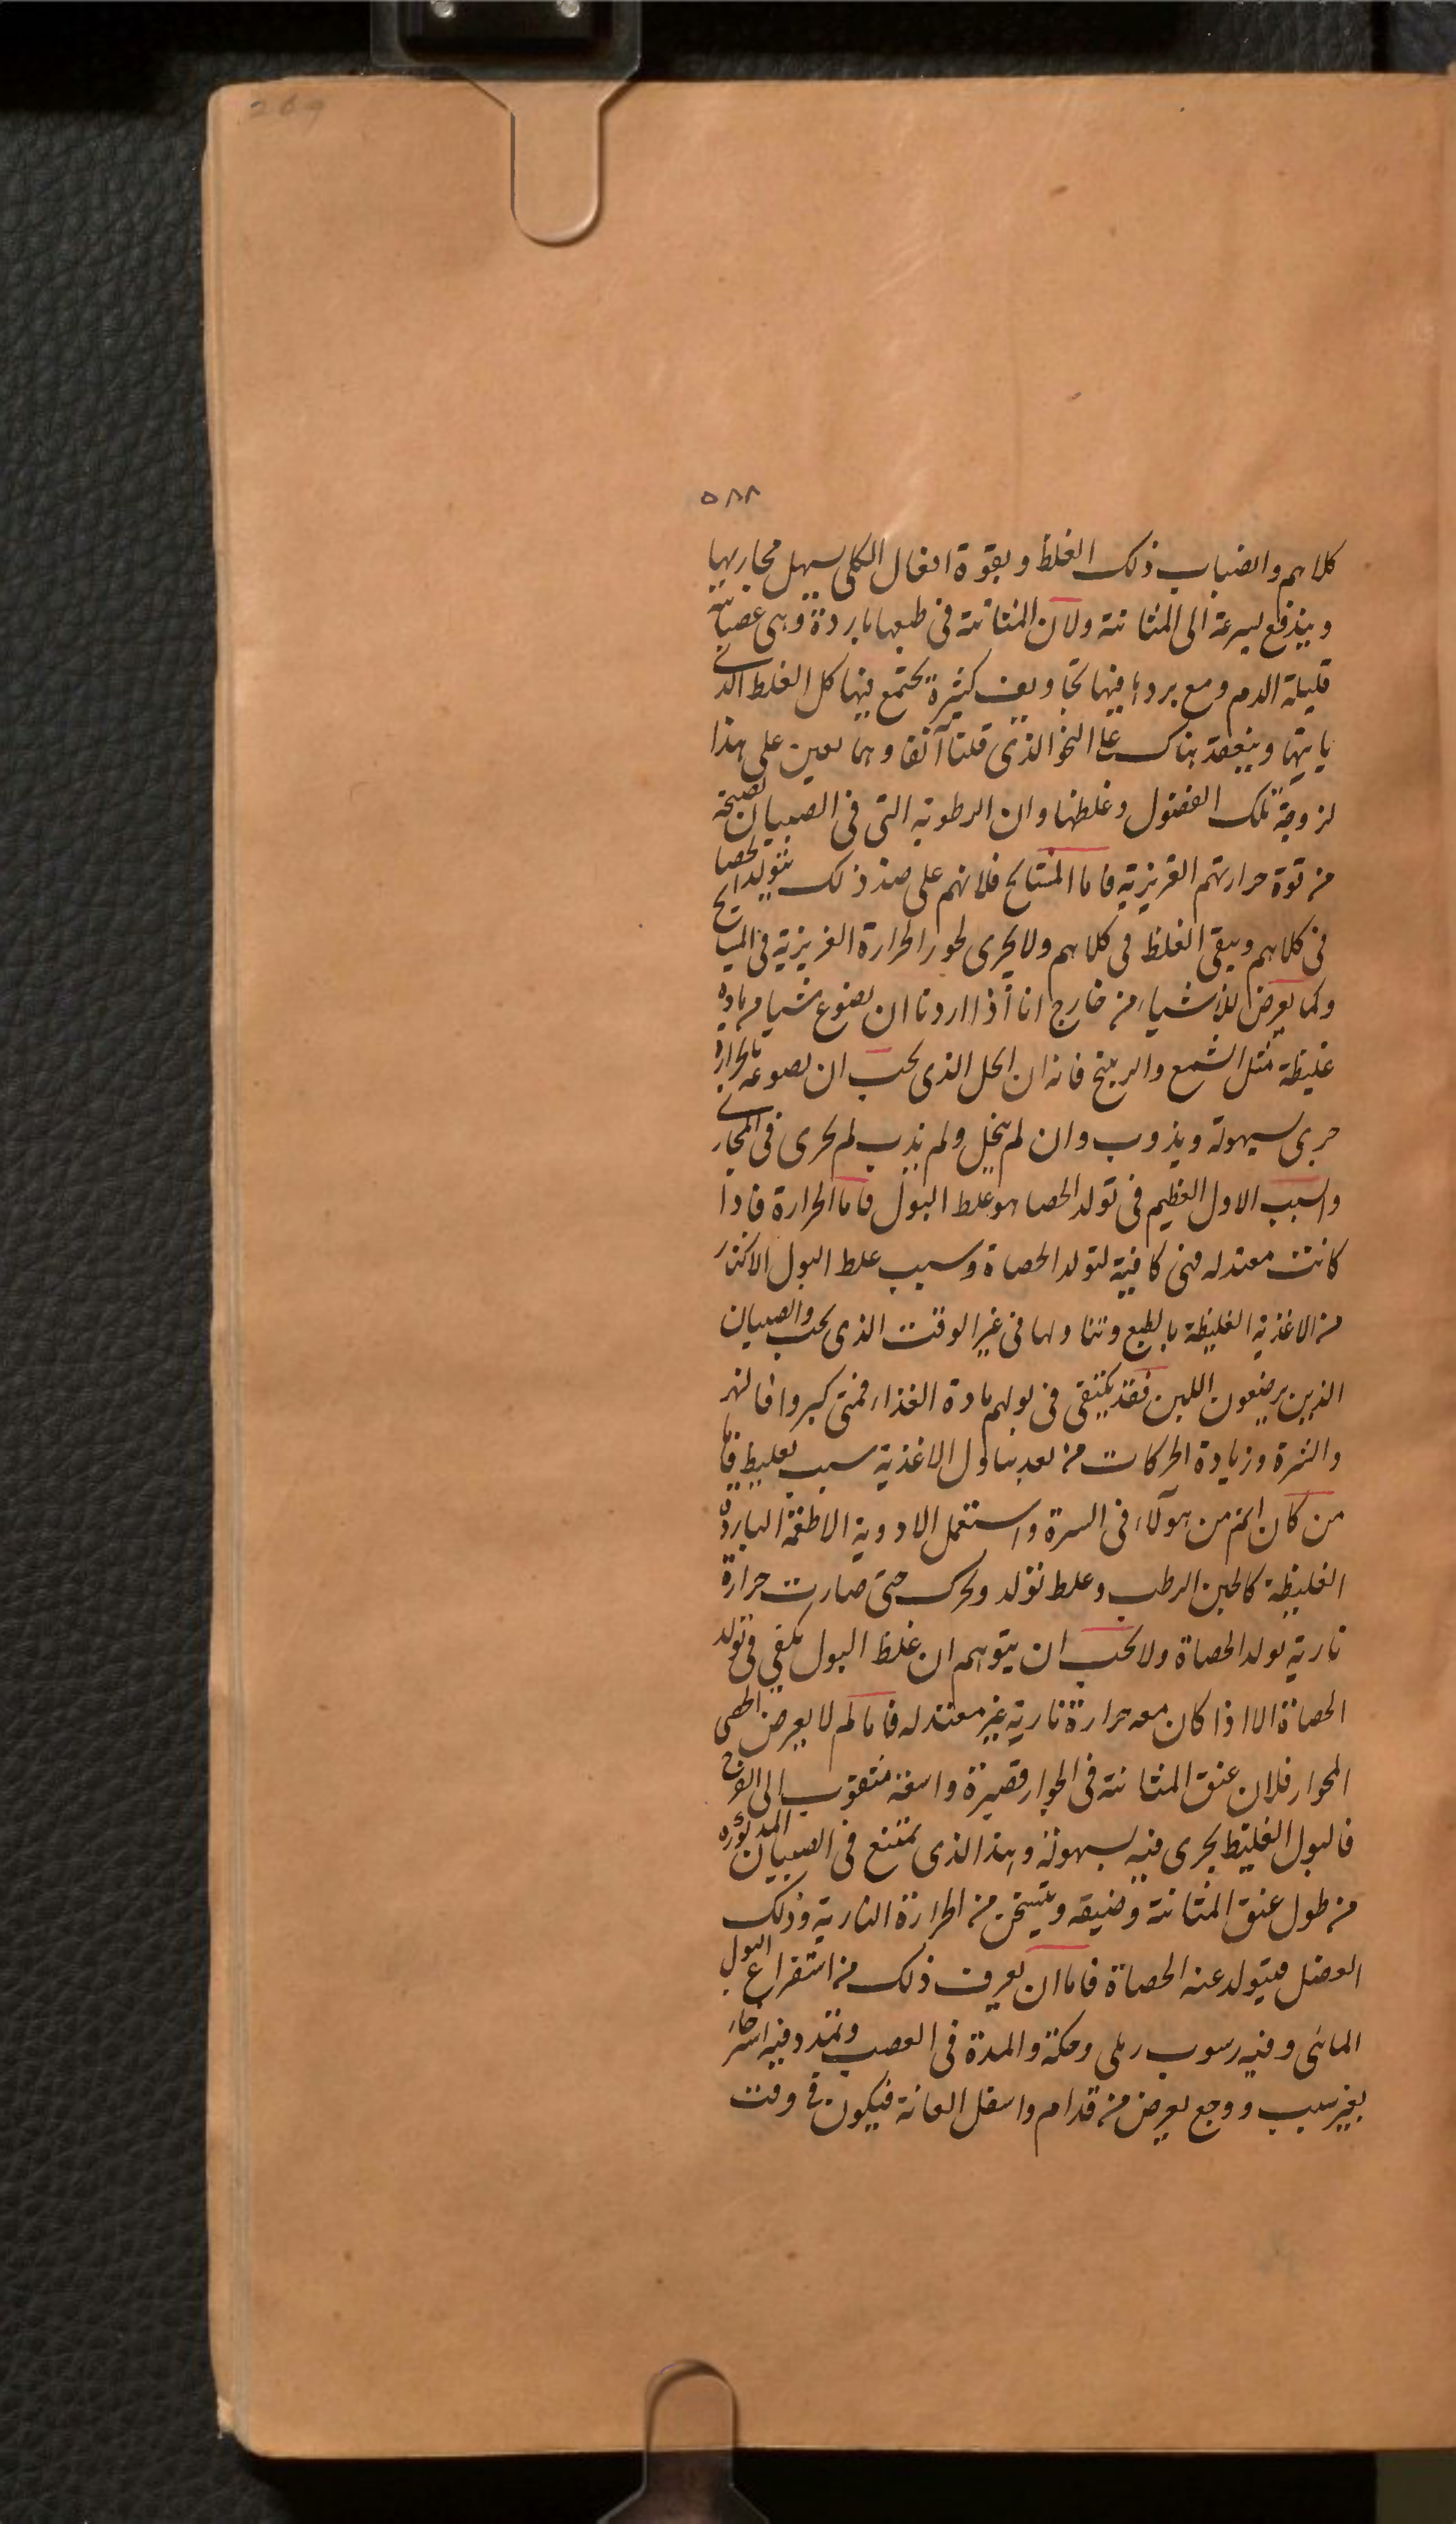 269
٥٨٨
كلاهم وانصباب ذلك الغلظ وبقوة افعال الكلى يسهل مجاريها
ويندفع بسرعة الى المثانة ولان المثانة فى طبعها باردة وهى عصبانية
قليلة الدم ومع بردها فيها تجاويف كثيرة يجتمع فيها كل الغلظ الذى
ياتيها وينعقد هناك على النحو الذى قلنا آنفا وهما يعين على هذا
لزوجة تلك الفضول وغلظها وان الرطوبة التى فى الصبيان نضيجة
من قوة حرارتهم الغريزية فاما المشايخ فلانهم على ضد ذلك يتولد الحصا
فى كلاهم ويبقى الغلظ فى كلاهم ولا يجرى لخور الحرارة الغريزية فى المشايخ
وكما يعرض للاشياء من خارج انا اذا اردنا ان نصوغ شيا من مادة
غليظة مثل الشمع والريتنج فانه ان انحل الذى يجب ان نصوغه بالحرارة
جرى بسهولة ويذوب وان لم ينحل ولم يذب لم يجرى فى المجارى
والسبب الاول العظيم فى تولد الحصا هو غلظ البول فاما الحرارة فاذا
كانت معتدله فهى كافية لتولد الحصاة وسبب غلظ البول الاكثار
من الاغذية الغليظة بالطبع وتناولها فى غير الوقت الذى يجب والصبيان
الذين يرضعون اللبن فقد يكتفى فى بولهم مادة الغذاء فمتى كبروا فالنهم
والشره وزيادة الحركات من بعد تناول الاغذية سبب تغليظ فاما
من كان اتم من هؤلاء فى السره واستعمل الادوية الاطعمة الباردة
الغليظة كالجبن الرطب وغلظ تولد وتحرك حتى صارت حرارة
نارية تولد الحصاة ولا يجب ان يتوهم ان غلظ البول يكفى فى تولد
الحصاة الا اذا كان معه حرارة نارية غير معتدله فاما لم لا يعرض الحصى
الجوار فلان عنق المثانة فى الجوار قصيرة واسعة مثقوب الى الفرج
فالبول الغليظ يجرى فيه بسهولة وهذا الذى يمتنع فى الصبيان المذكوره
من طول عنق المثانة وضيقه ويتسخن من الحرارة النارية وذلك
الفضل فيتولد عنه الحصاة فاما ان يعرف ذلك من استفراغ البول
المائى وفيه رسوب رملى وحكة والمدة فى العصب وتمدد فيه استرخاء
بغير سبب ووجع يعرض من قدام واسفل العانة فيكون فى وقت